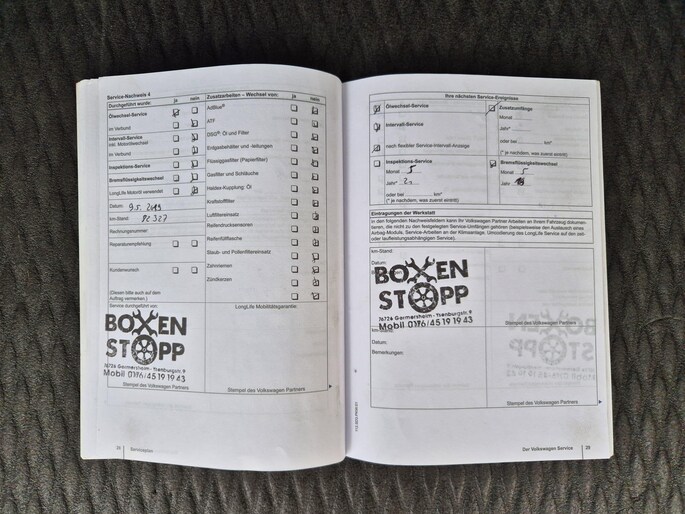 Service-Nachweis 4
Durchgeführt wurde: ja nein
Ölwechsel-Service
im Verbund
Intervall-Service
inkl. Motorölwechsel
im Verbund
Inspektions-Service
Bremsflüssigkeitswechsel
LongLife Motoröl verwendet
Datum: 9.5.2019
km-Stand: 92.327
Rechnungsnummer:
Reparaturempfehlung
Kundenwunsch
(Diesen bitte auch auf dem
Auftrag vermerken.)
Service durchgeführt von:
BOXEN
STOPP
76726 Germersheim - Tsenburgstr. 9
Mobil 0176/45 19 19 43
Stempel des Volkswagen Partners
Zusatzarbeiten – Wechsel von: ja nein
AdBlue®
ATF
DSG®: Öl und Filter
Erdgasbehälter und -leitungen
Flüssiggasfilter (Papierfilter)
Gasfilter und Schläuche
Haldex-Kupplung: Öl
Kraftstofffilter
Luftfiltereinsatz
Reifendrucksensoren
Reifenfüllflasche
Staub- und Pollenfiltereinsatz
Zahnriemen
Zündkerzen
LongLife Mobilitätsgarantie:
Stempel des Volkswagen Partners
Serviceplan
Ihre nächsten Service-Ereignisse
Ölwechsel-Service
Intervall-Service
nach flexibler Service-Intervall-Anzeige
Zusatzumfänge
Monat
Jahr*
oder bei km*
(* je nachdem, was zuerst eintritt)
Inspektions-Service
Monat 5
Jahr*
oder bei km*
(* je nachdem, was zuerst eintritt)
Bremsflüssigkeitswechsel
Monat 5
Jahr
Eintragungen der Werkstatt
In den folgenden Nachweisfeldern kann Ihr Volkswagen Partner Arbeiten an Ihrem Fahrzeug dokumen-
tieren, die nicht zu den festgelegten Service-Umfängen gehören (beispielsweise den Austausch eines
Airbag-Moduls, Service-Arbeiten an der Klimaanlage, Umcodierung des LongLife Service auf den zeit-
oder laufleistungsabhängigen Service).
km-Stand:
Datum:
BOXEN
STOPP
76726 Germersheim - Tsenburgstr. 9
Mobil 0176/45 19 19 43
Stempel des Volkswagen Partners
km-Stand:
Datum:
Bemerkungen:
Stempel des Volkswagen Partners
Der Volkswagen Service